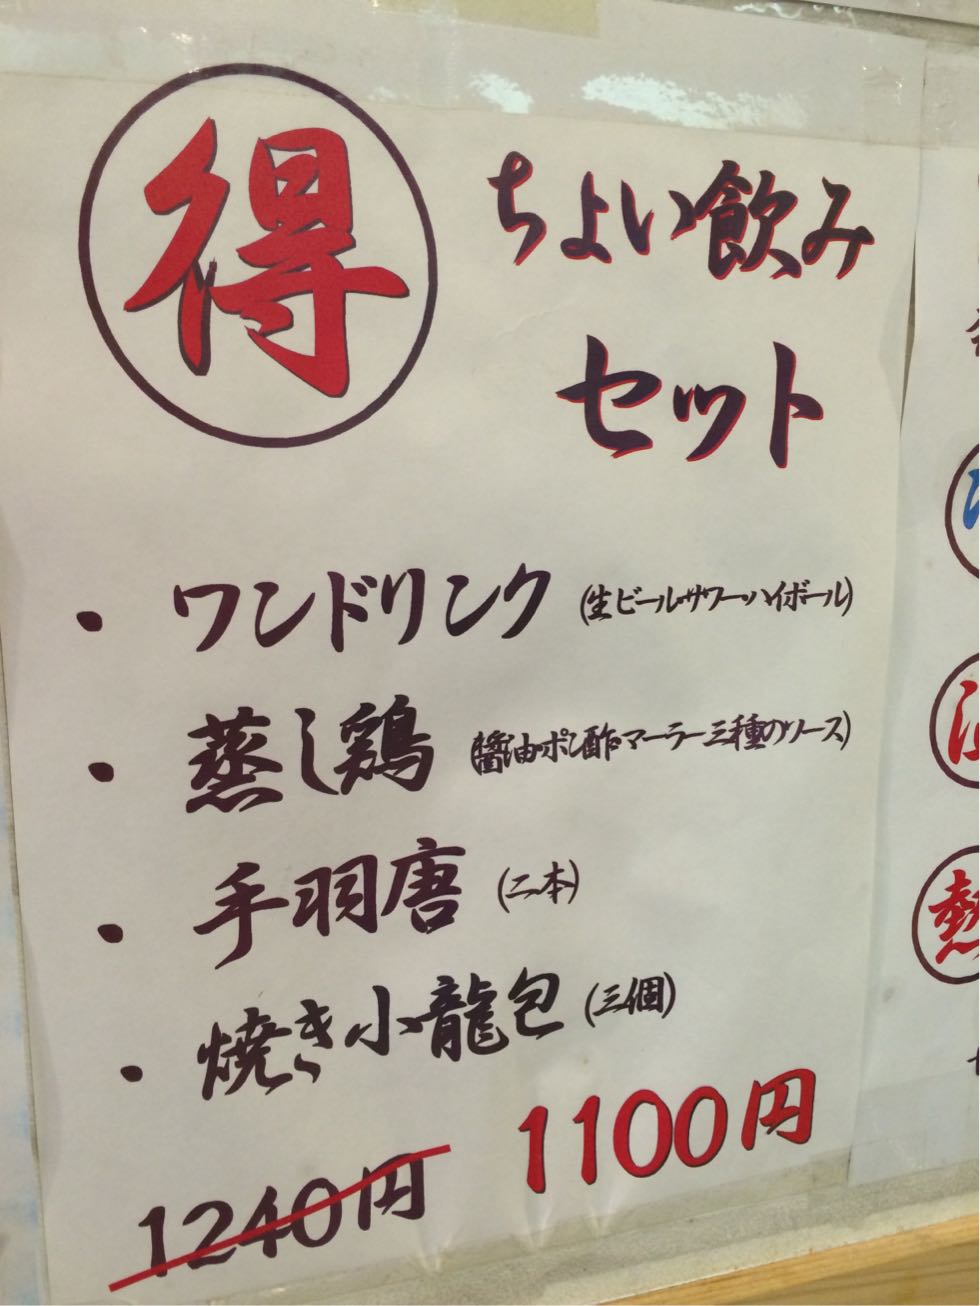 得
ちょい飲み
セット
・ワンドリンク (生ビール・サワー・ハイボール)
・蒸し鶏 (醤油・ポン酢・マーラー三種のソース)
・手羽唐 (二本)
・焼き小龍包 (三個)
1240円 1100円
熱